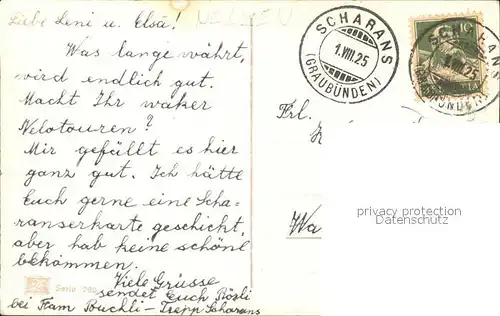 Liebe Leni u. Elsä!
Was lange währt,
wird endlich gut.
Macht Ihr waker
Velotouren?
Mir gefällt es hier
ganz gut. Ich hätte
Euch gerne eine Scha-
ranserkarte geschickt,
aber hab keine schöne
bekommen.
Viele Grüsse
sendet Euch Rösli
bei Fam Buchli - Trepp Scharans
Serie
SCHARANS
1.VIII.25
(GRAUBÜNDEN)
SCHARANS
VIII.25
Frl.
Wa
privacy protection
Datenschutz